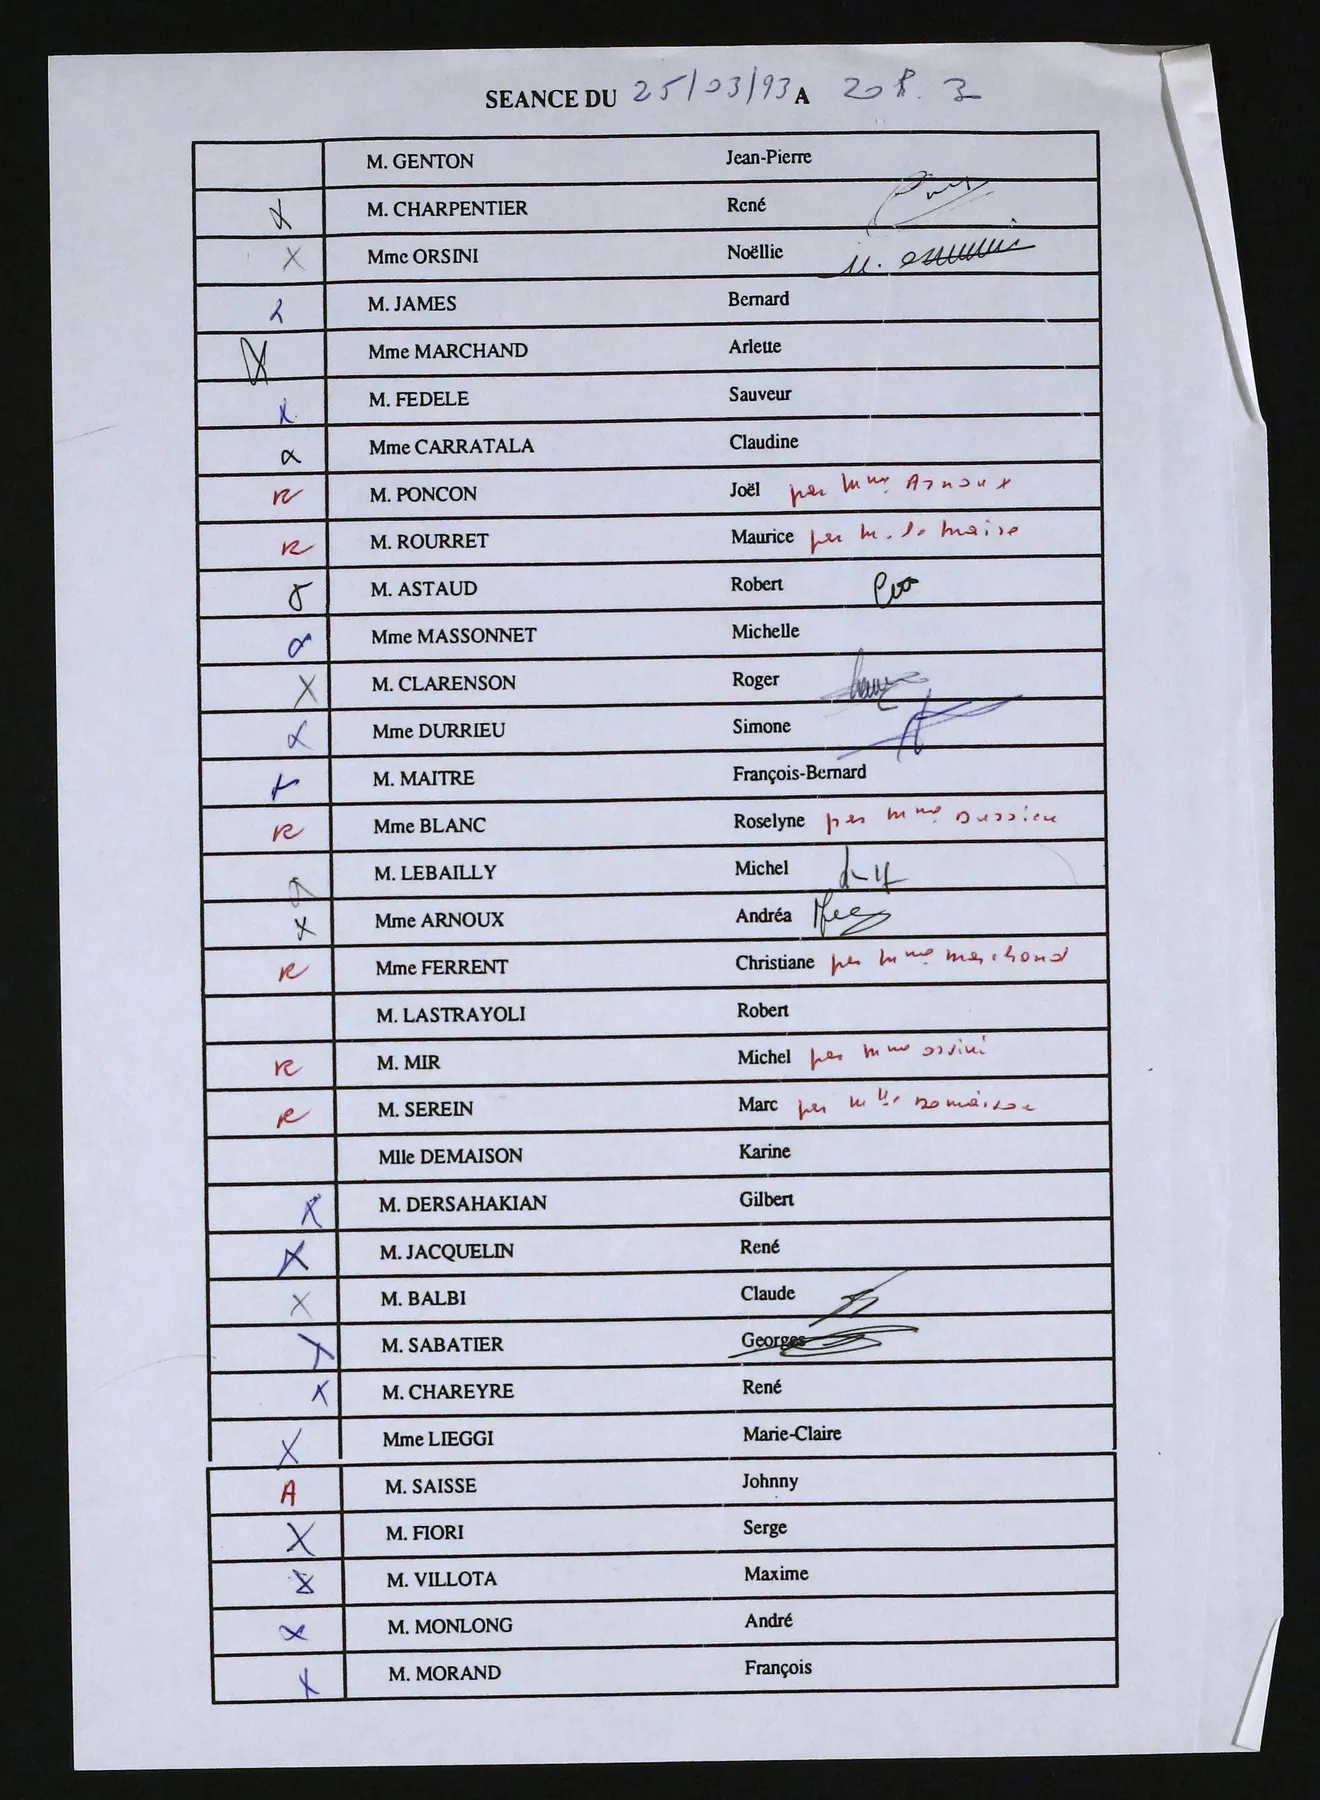 SEANCE DU 25/03/93 A 20h.3
M. GENTON Jean-Pierre
M. CHARPENTIER René
X Mme ORSINI Noëllie
M. JAMES Bernard
Mme MARCHAND Arlette
M. FEDELE Sauveur
Mme CARRATALA Claudine
R M. PONCON Joël par Mme Arnoux
R M. ROURRET Maurice par M. le Maire
M. ASTAUD Robert
Mme MASSONNET Michelle
X M. CLARENSON Roger
Mme DURRIEU Simone
M. MAITRE François-Bernard
R Mme BLANC Roselyne par Mme Durrieu
M. LEBAILLY Michel
X Mme ARNOUX Andréa
R Mme FERRENT Christiane par Mme Marchand
M. LASTRAYOLI Robert
R M. MIR Michel par Mme Orsini
R M. SEREIN Marc par Mlle Demaison
Mlle DEMAISON Karine
X M. DERSAHAKIAN Gilbert
X M. JACQUELIN René
X M. BALBI Claude
M. SABATIER Georges
X M. CHAREYRE René
X Mme LIEGGI Marie-Claire
A M. SAISSE Johnny
X M. FIORI Serge
M. VILLOTA Maxime
M. MONLONG André
X M. MORAND François